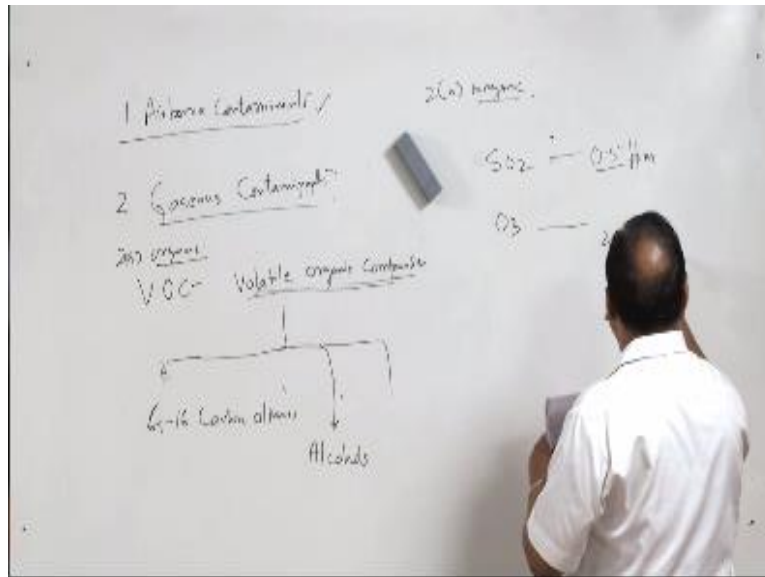 1 Airborne Contaminants
2 Gaseous Contaminants
organic
VOC - Volatile organic Compounds
6-16 Carbon atoms
Alcohols
2(a) inorganic
SO2 — 0.5
O3 —